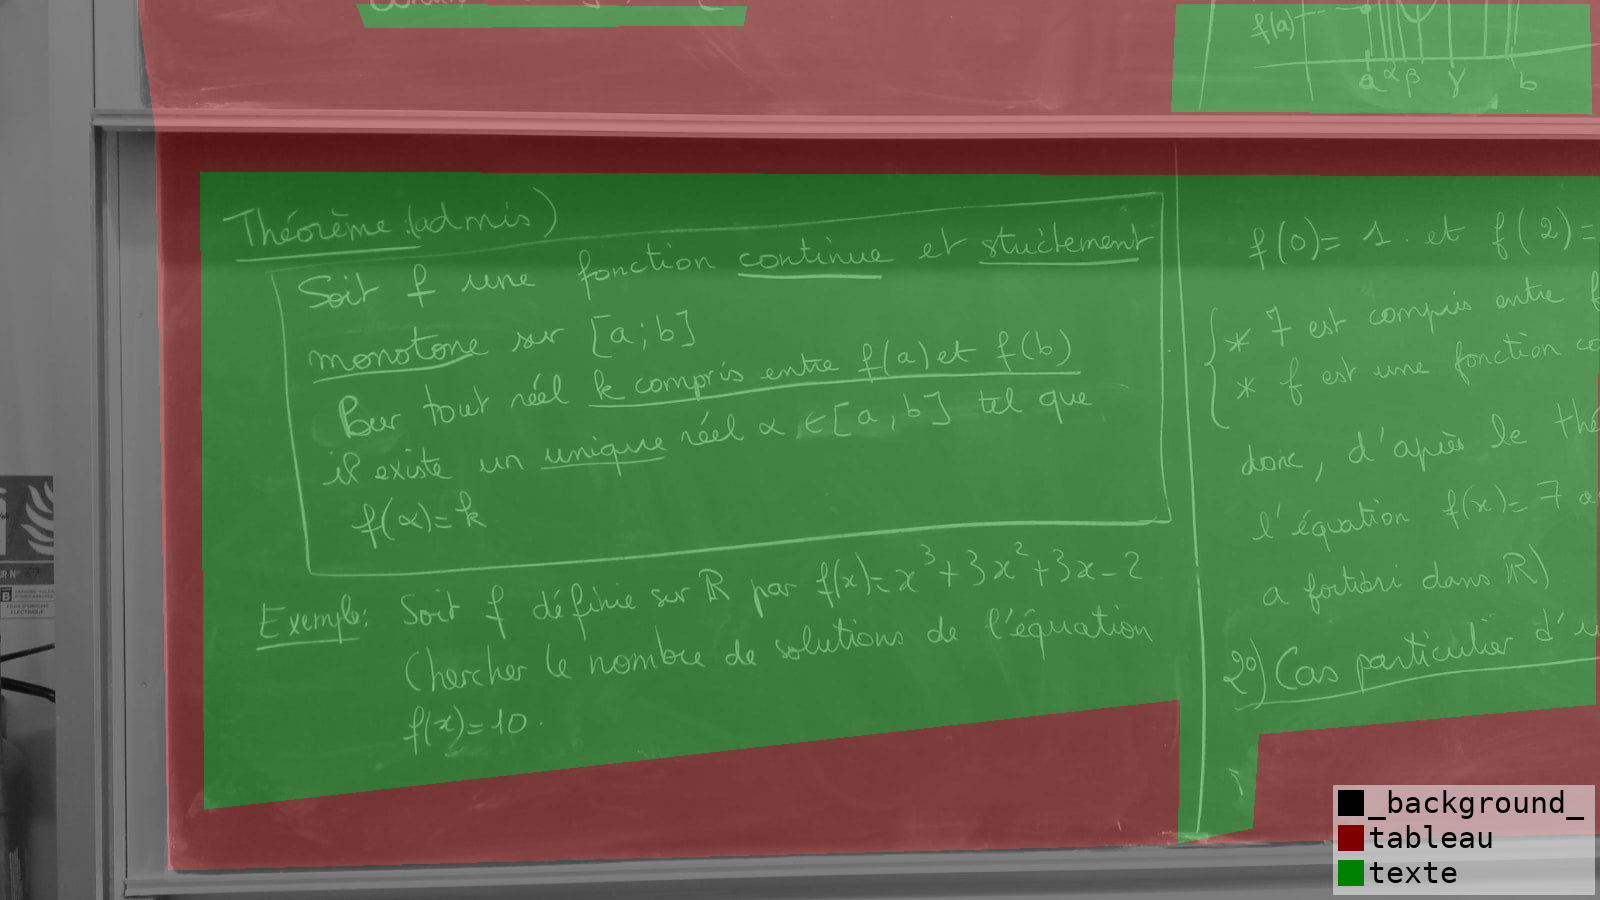 f(a)
a α β γ b
Théorème : (admis)
Soit f une fonction continue et strictement
monotone sur [a ; b]
Pour tout réel k compris entre f(a) et f(b)
il existe un unique réel α ∈ [a ; b] tel que
f(α) = k
Exemple : Soit f définie sur ℝ par f(x) = x³ + 3x² + 3x - 2
Chercher le nombre de solutions de l'équation
f(x) = 10.
f(0) = 1. et f(2) =
* 7 est compris entre f
* f est une fonction co
donc, d'après le thé
l'équation f(x) = 7 a
a fortiori dans ℝ)
2°) Cas particulier d'u
_background_
tableau
texte